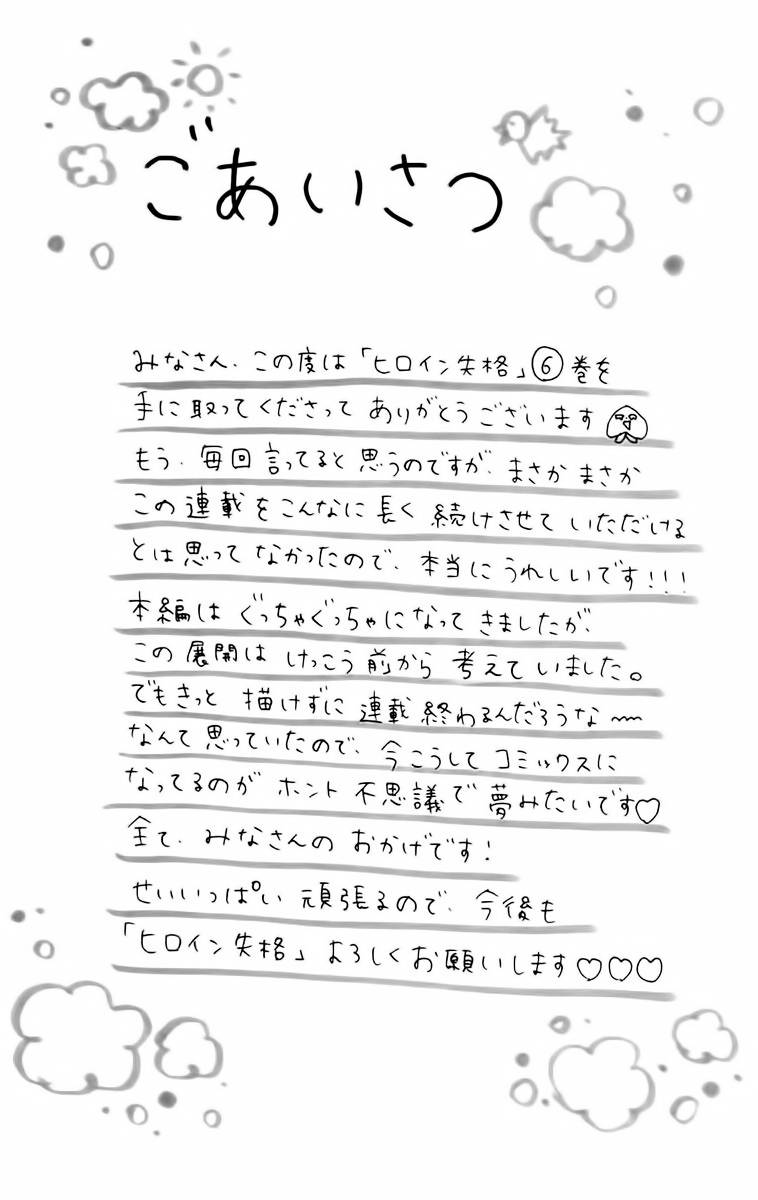 ごあいさつ
みなさん、この度は「ヒロイン失格」⑥巻を
手に取ってくださって ありがとうございます
もう、毎回言ってると思うのですが、まさか まさか
この連載をこんなに長く続けさせていただける
とは思ってなかったので、本当にうれしいです!!!
本編はぐっちゃぐっちゃになってきましたが、
この展開はけっこう前から考えていました。
でもきっと描けずに連載終わるんだろうな〜
なんて思っていたので、今こうしてコミックスに
なってるのがホント不思議で夢みたいです♡
全て、みなさんのおかげです!
せいいっぱい頑張るので、今後も
「ヒロイン失格」よろしくお願いします♡♡♡